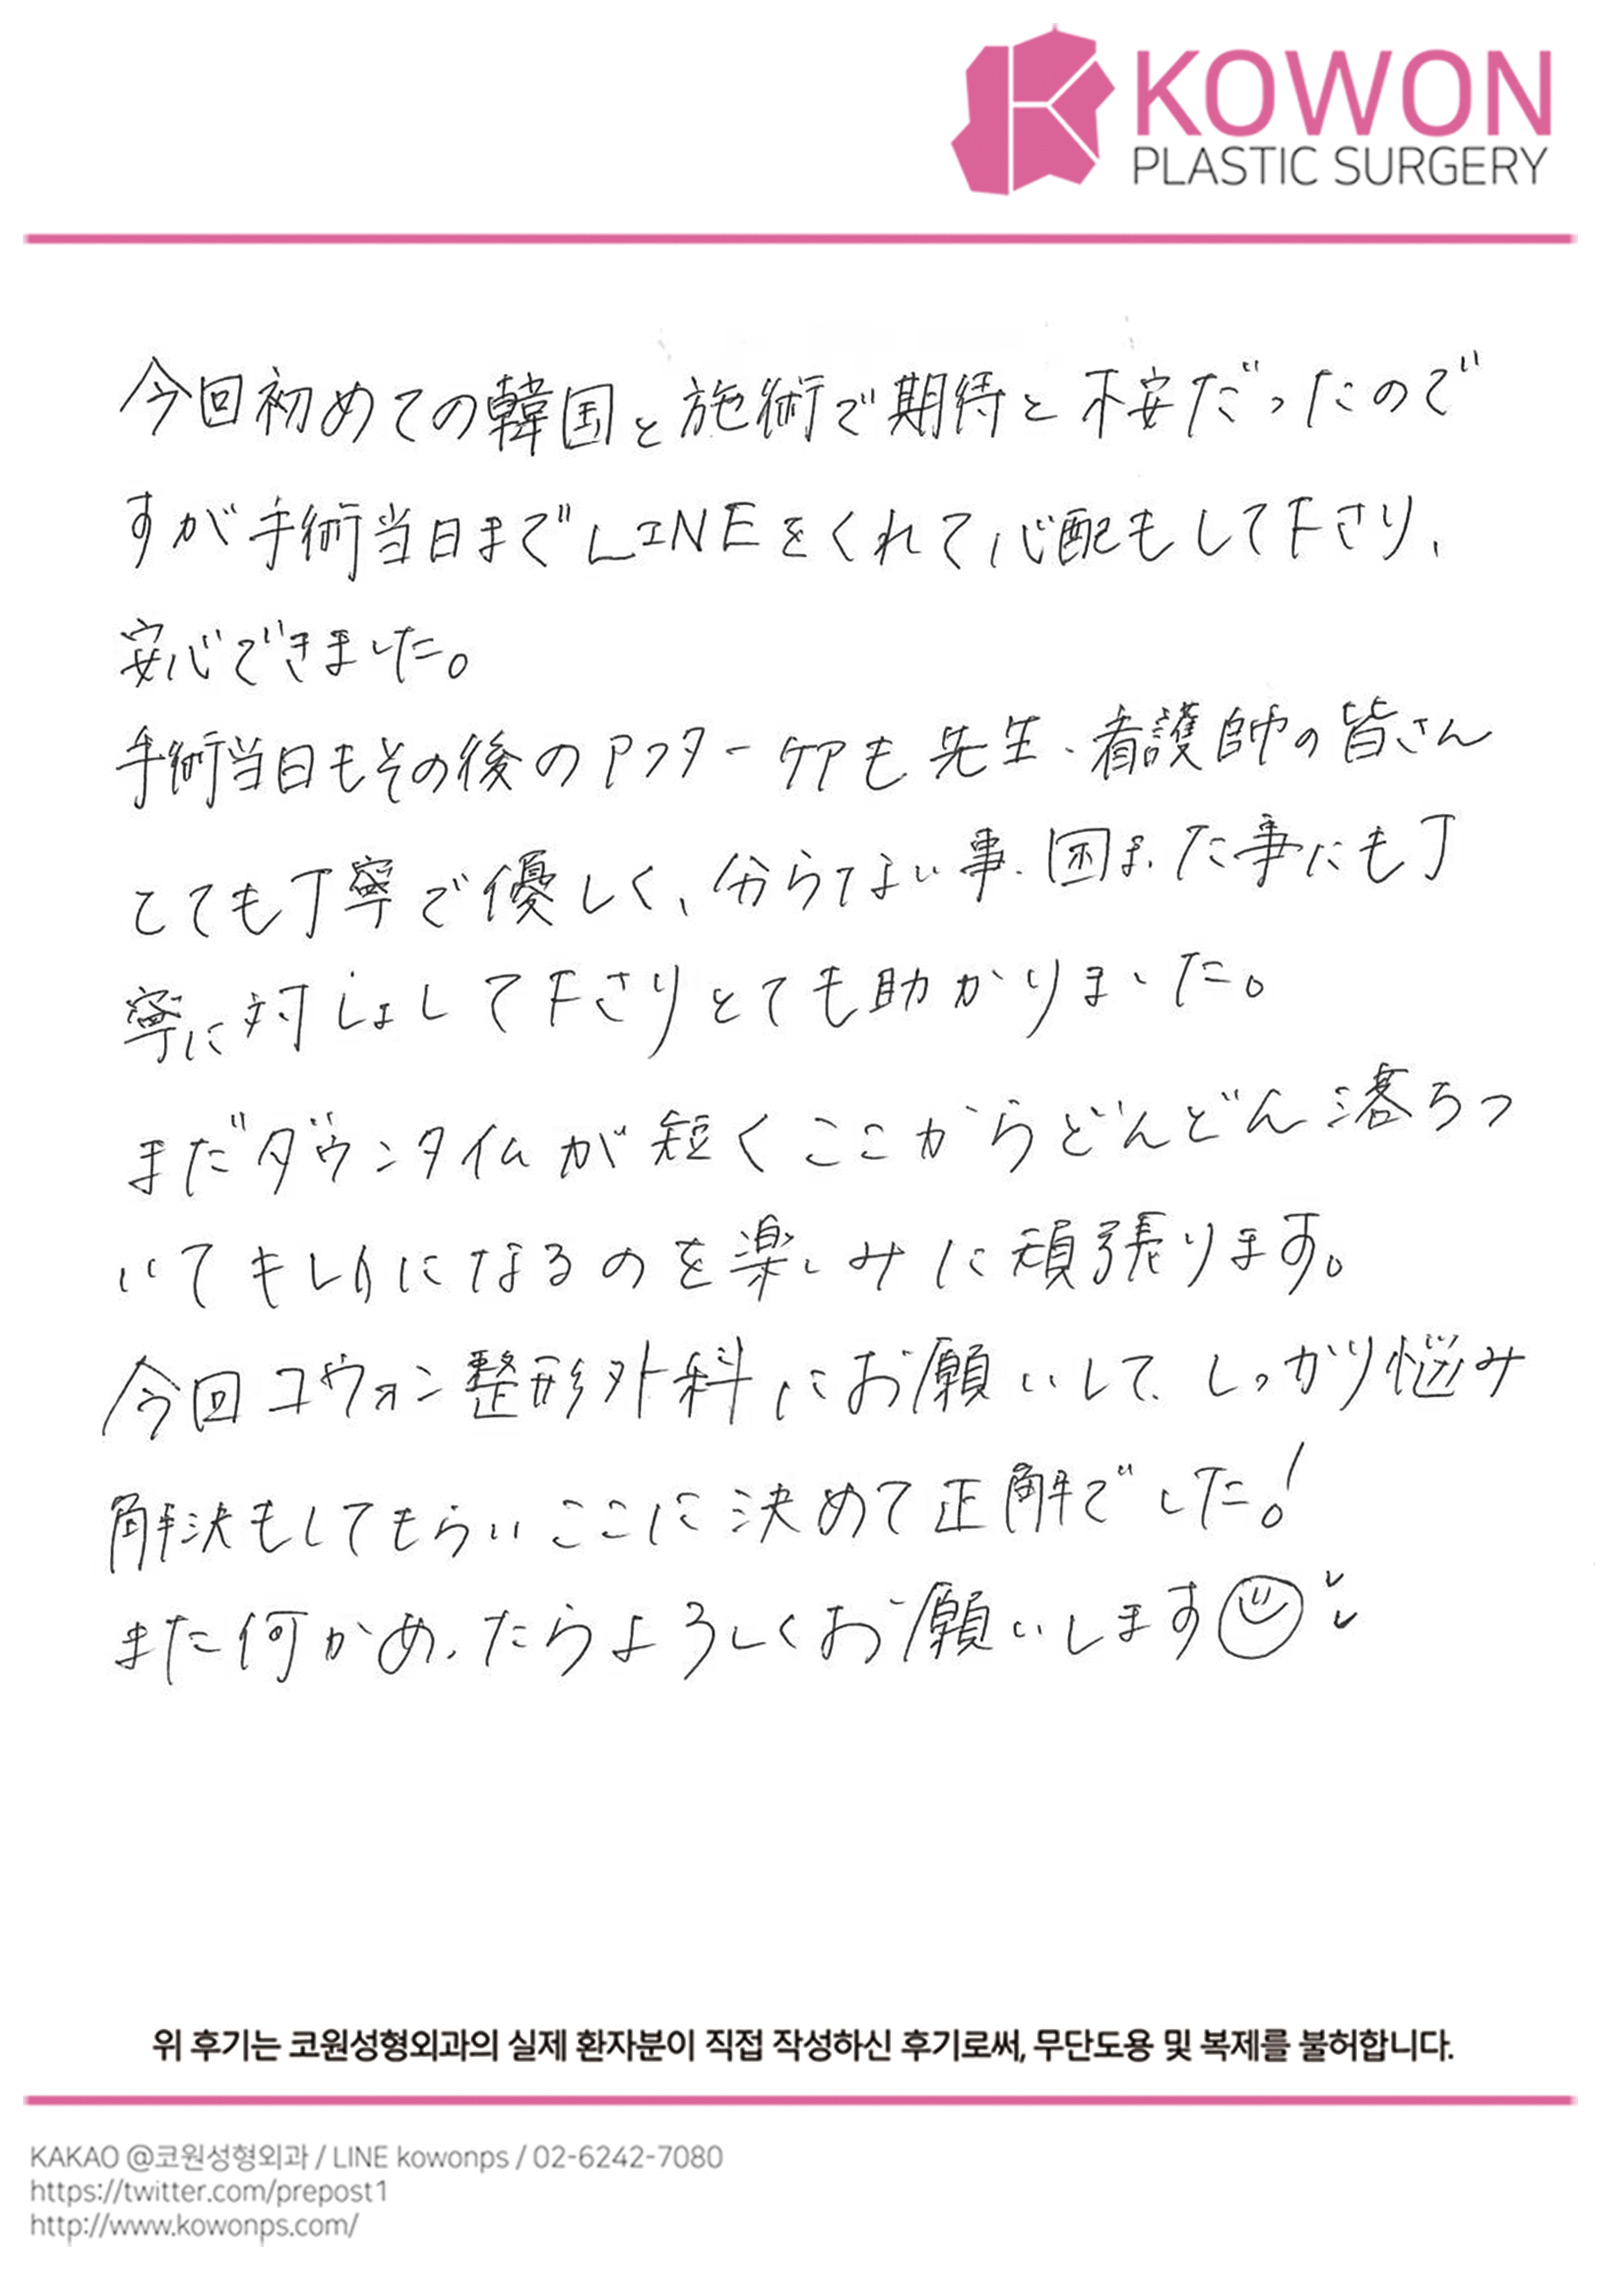 KOWON
PLASTIC SURGERY
今回初めての韓国と施術で期待と不安だったので
すが手術当日までLINEをくれて心配もして下さり、
安心できました。
手術当日もその後のアフターケアも先生、看護師の皆さん
とても丁寧で優しく、分らない事、困まった事にも丁
寧に対しょして下さりとても助かりました。
まだダウンタイムが短くここからどんどん落ちつ
いてキレイになるのを楽しみに頑張ります。
今回コウォン整形外科にお願いして、しっかり悩み
解決もしてもらいここに決めて正解でした。!
また何かあったらよろしくお願いします
위 후기는 코원성형외과의 실제 환자분이 직접 작성하신 후기로써, 무단도용 및 복제를 불허합니다.
KAKAO @코원성형외과 / LINE kowonps / 02-6242-7080
https://twitter.com/prepost1
http://www.kowonps.com/